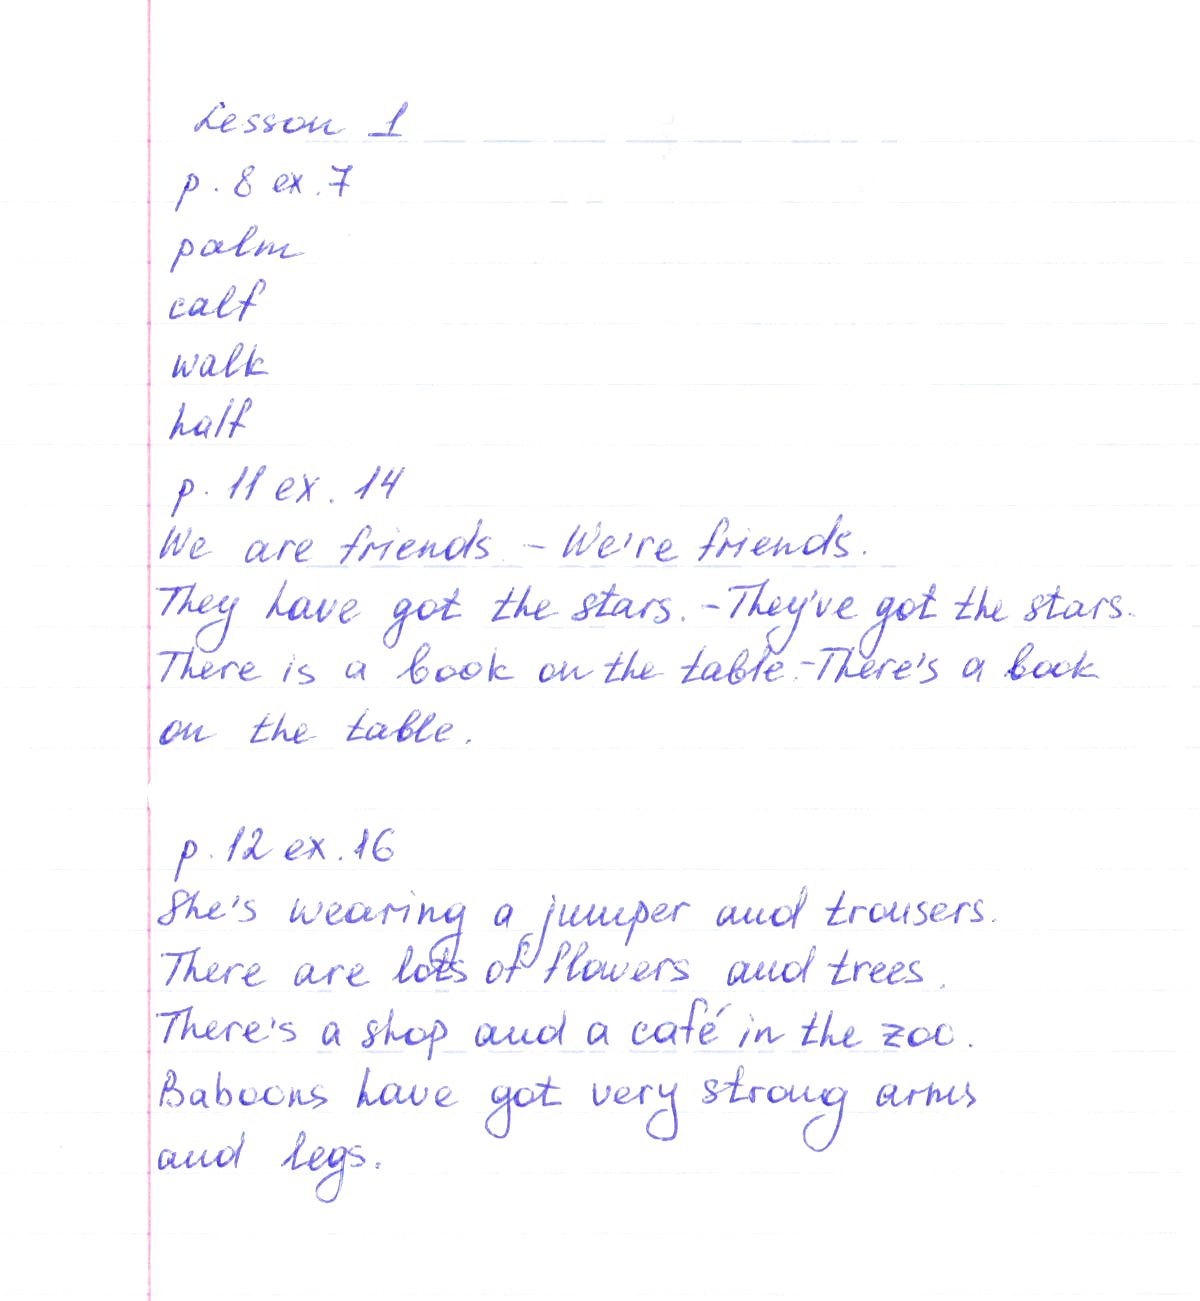 Lesson 1
p. 8 ex. 7
palm
calf
walk
half
p. 11 ex. 14
We are friends. - We're friends.
They have got the stars. - They've got the stars.
There is a book on the table. - There's a book
on the table.
p. 12 ex. 16
She's wearing a jumper and trousers.
There are lots of flowers and trees.
There's a shop and a café in the zoo.
Baboons have got very strong arms
and legs.